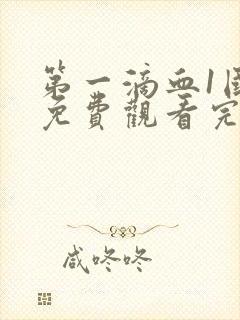 第一滴血1国
免費觀看完
咸咚咚